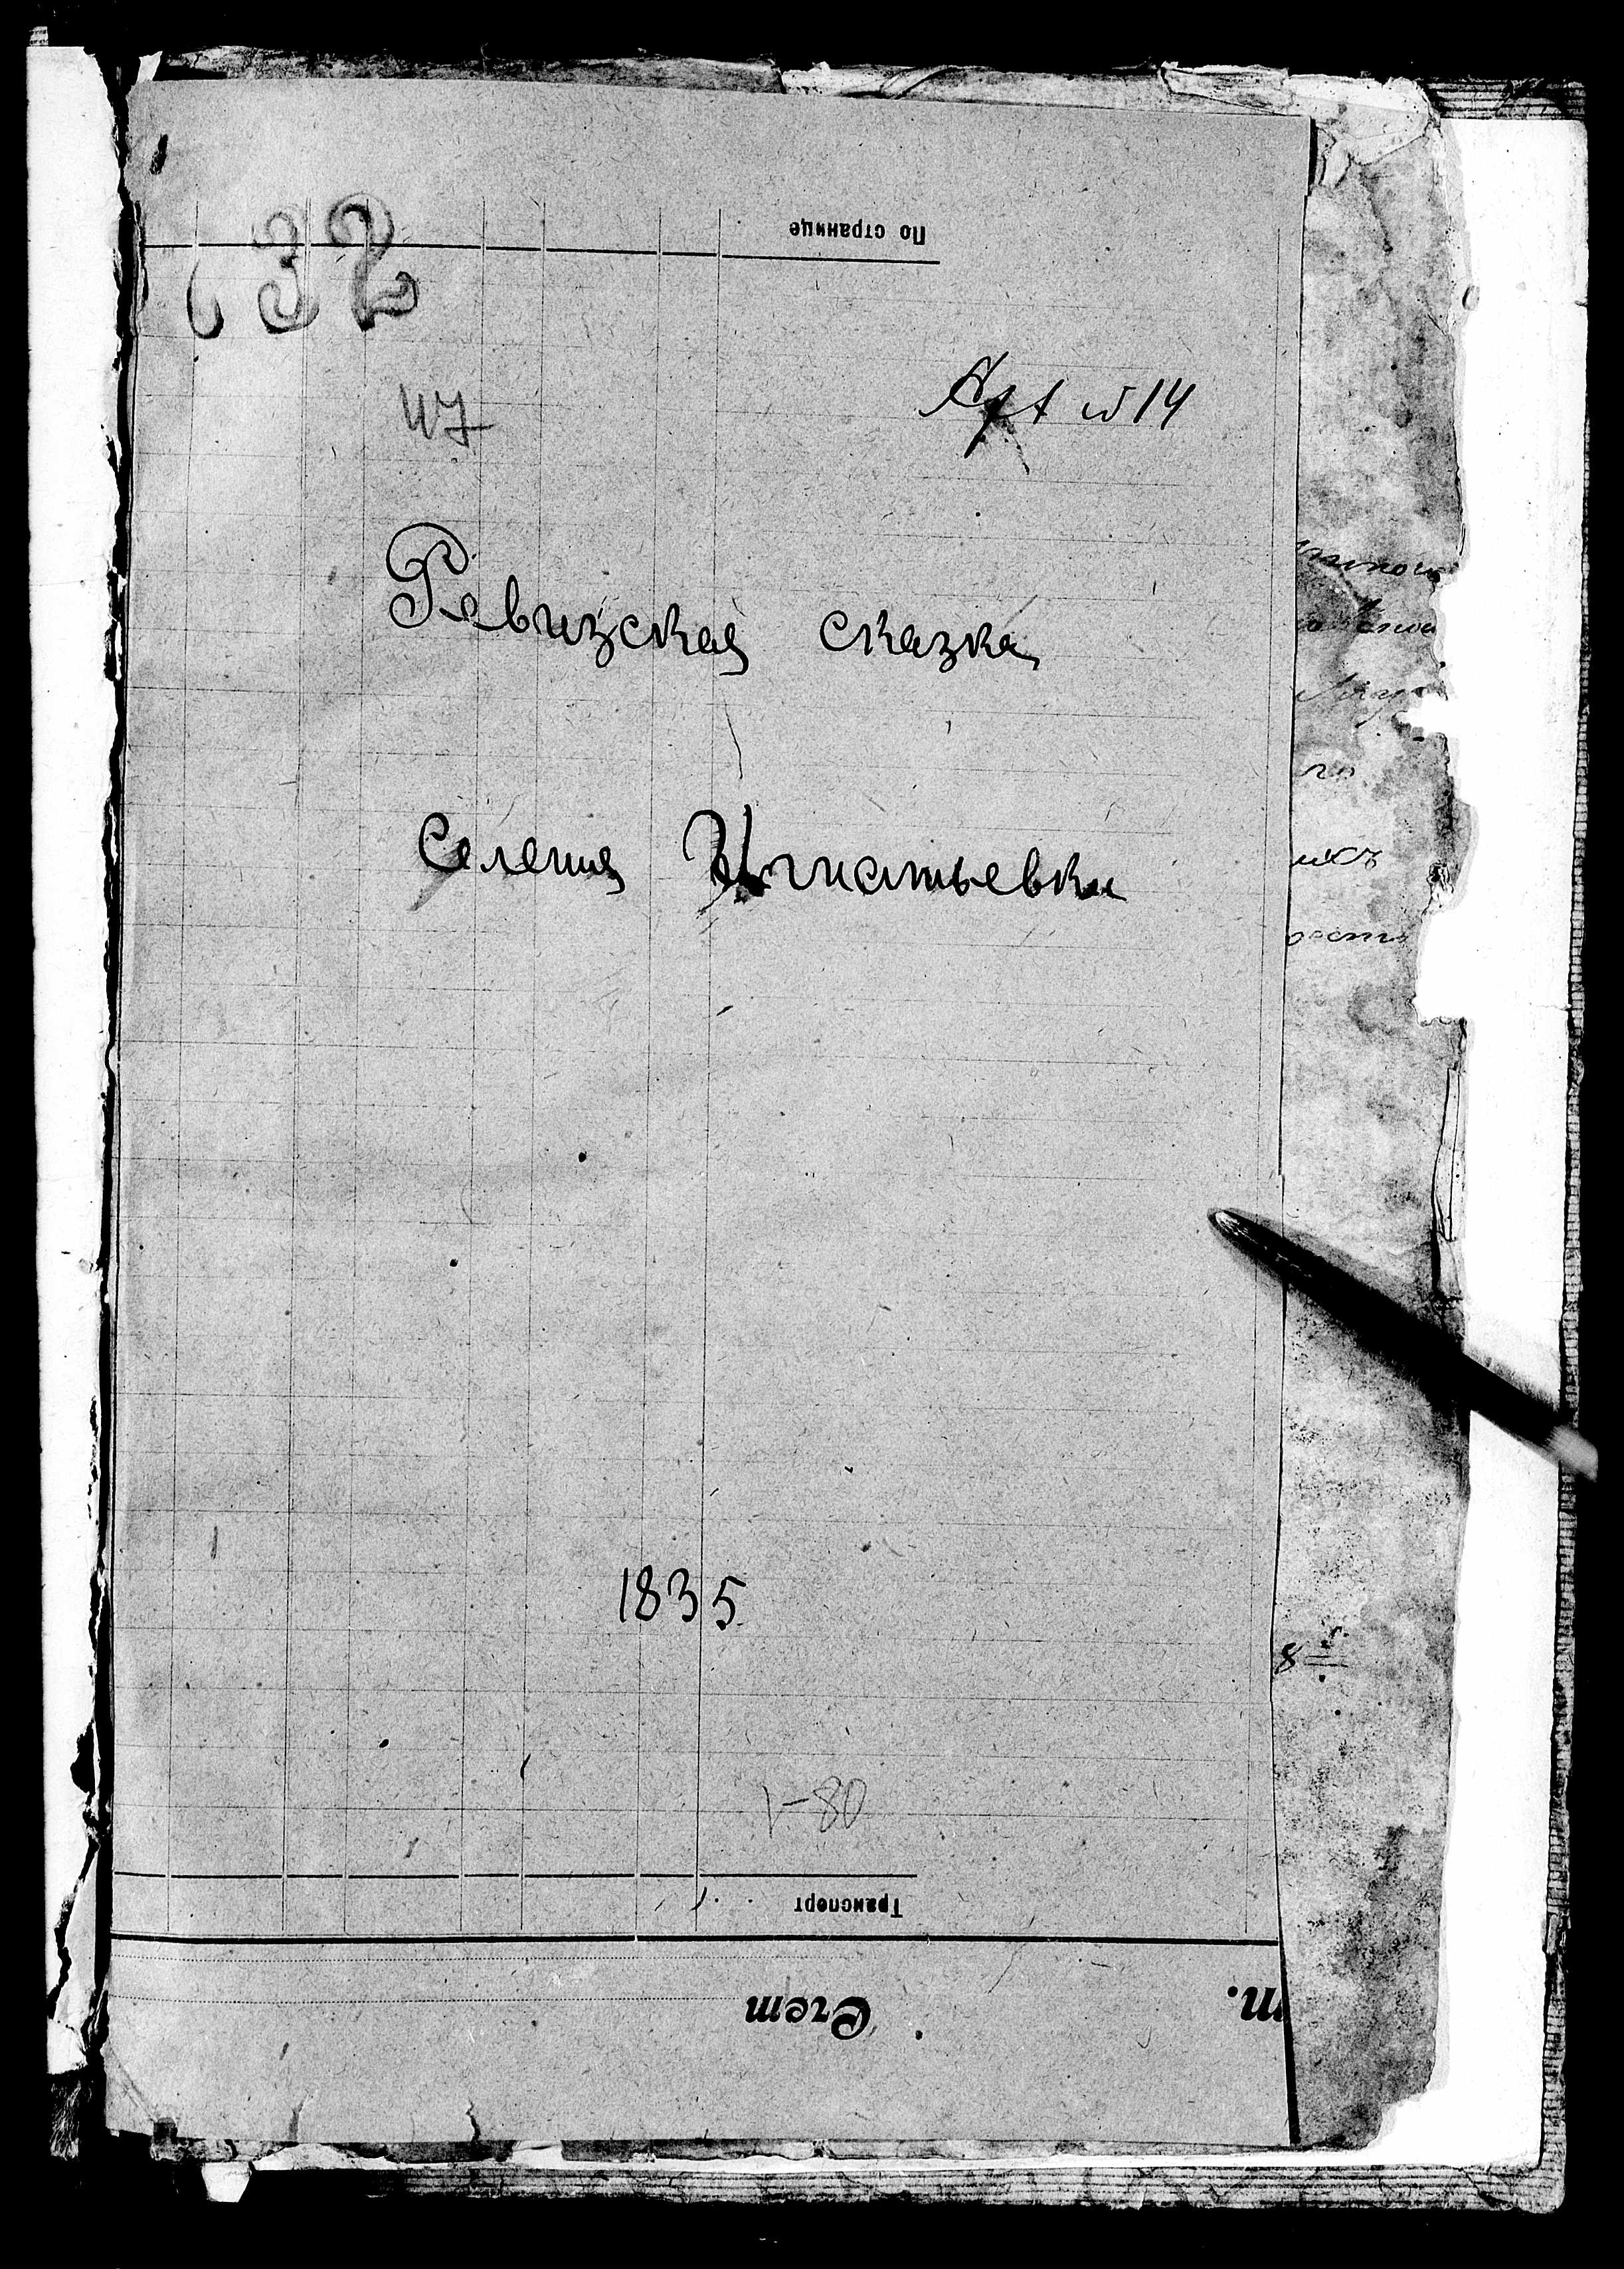 По странице
132
47
Арх №14
Ревизская сказка
селения Игнатьевки
1835
1-80
Транспорт
Счет